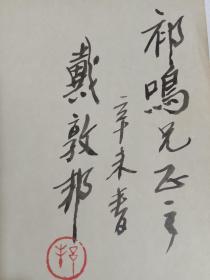 祁鸣兄正之
辛未春
戴敦邦